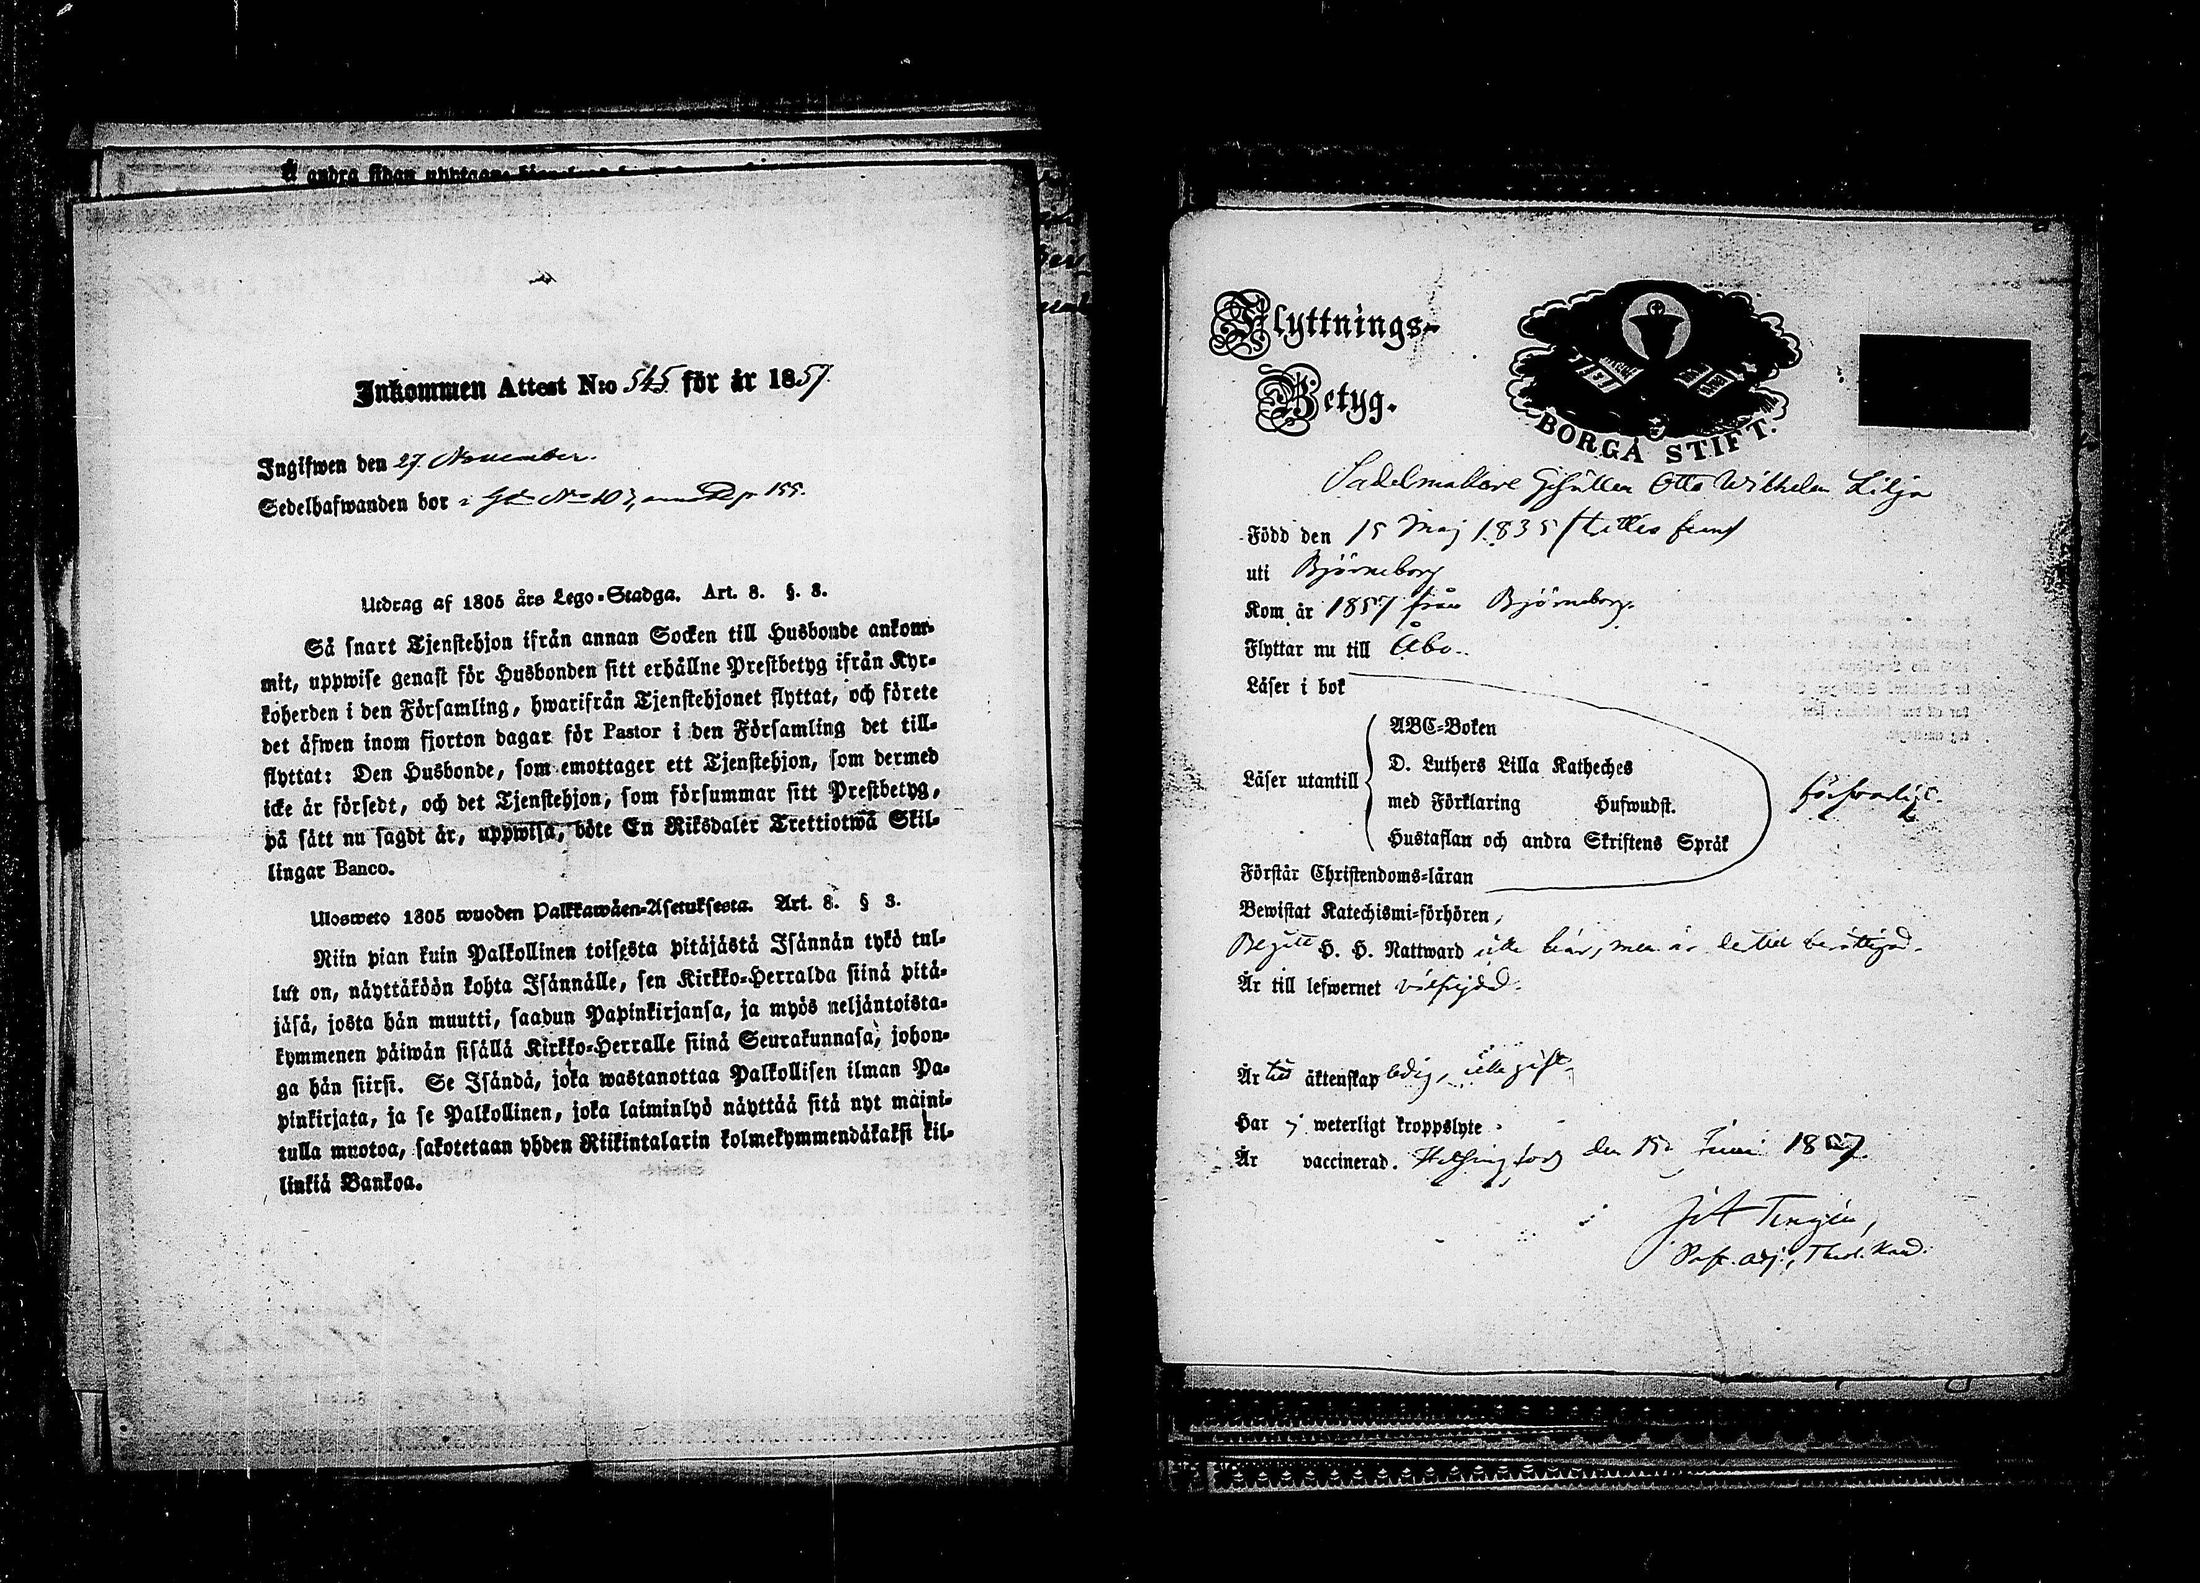 Å andra sidan upptagne
Inkommen Attest N:o 545 för år 1857.
Ingifwen den 27 November.
Sedelhafwanden bor i Gd No 10, 155.
Utdrag af 1805 års Lego-Stadga. Art. 8. §. 3.
Så snart Tjenstehjon ifrån annan Socken till Husbonde ankom-
mit, uppwise genast för Husbonden sitt erhållne Prestbetyg ifrån Kyr-
koherden i den Församling, hwarifrån Tjenstehjonet flyttat, och förete
det äfwen inom fjorton dagar för Pastor i den Församling det till-
flyttat: Den Husbonde, som emottager ett Tjenstehjon, som dermed
icke är försedt, och det Tjenstehjon, som försummar sitt Prestbetyg,
på sätt nu sagdt är, uppwisa, böte En Riksdaler Trettiotwå Skil-
lingar Banco.
Ulosweto 1805 wuoden Palkkawäen-Asetuksesta. Art. 8. § 3.
Niin pian kuin Palkollinen toisesta pitäjästä Isännän tykö tul-
lut on, näyttäköön kohta Isännälle, sen Kirkko-Herralda siinä pitä-
jäsä, josta hän muutti, saadun Papinkirjansa, ja myös neljäntoista-
kymmenen päiwän sisällä Kirkko-Herralle siinä Seurakunnasa, johon-
ga hän siirsi. Se Isändä, joka wastanottaa Palkollisen ilman Pa-
pinkirjata, ja se Palkollinen, joka laiminlyö näyttää sitä nyt maini-
tulla muotoa, sakotetaan yhden Riikintalarin kolmekymmendäkaksi kil-
linkiä Bankoa.
Flyttnings-
Betyg.
BORGÅ STIFT.
Sadelmakare Gesällen Otto Wilhelm Lilja
Född den 15 Maj 1835 /trettio fem/
uti Björneborg
Kom år 1857 från Björneborg.
Flyttar nu till Åbo.
Läser i bok
ABC-Boken
D. Luthers Lilla Katheches
Läser utantill
med Förklaring Hufwudst.
försvarligt.
Hustaflan och andra Skriftens Språk
Förstår Christendoms-läran
Bewistat Katechismi-förhören,
Begått H. H. Nattward icke här, men är dertill berättigad.
Är till lefwernet välfrejdad.
Är till äktenskap ledig, icke gift.
Har ej weterligt kroppslyte.
Är vaccinerad. Helsingfors den 15 Juni 1857.
Tengén,
Past. adj., Theol. Kand.